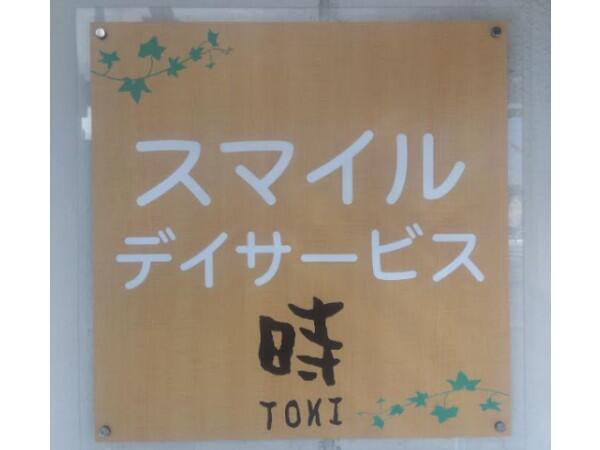 スマイル
デイサービス
時
TOKI